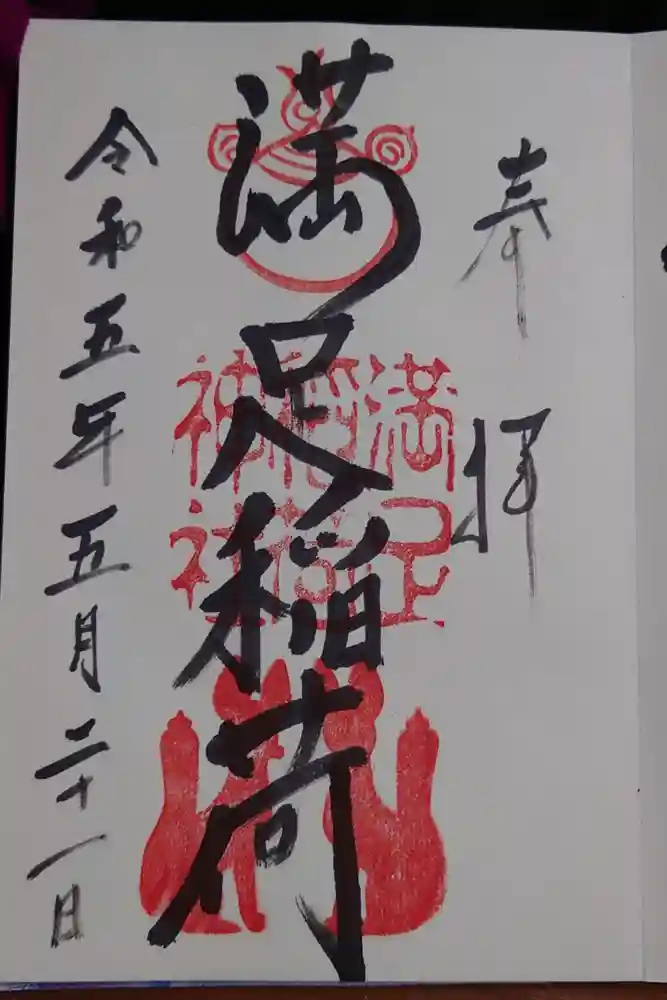 奉拝
満足稲荷
満足
稲荷
神社
令和五年五月二十一日